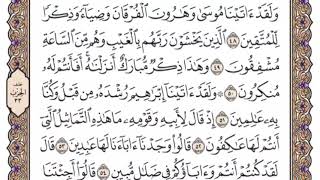 وَلَقَدْ ءَاتَيْنَا مُوسَىٰ وَهَٰرُونَ ٱلْفُرْقَانَ وَضِيَآءً وَذِكْرًا
لِّلْمُتَّقِينَ ٤٨ ٱلَّذِينَ يَخْشَوْنَ رَبَّهُم بِٱلْغَيْبِ وَهُم مِّنَ ٱلسَّاعَةِ
مُشْفِقُونَ ٤٩ وَهَٰذَا ذِكْرٌ مُّبَارَكٌ أَنزَلْنَٰهُ أَفَأَنتُمْ لَهُۥ
مُنكِرُونَ ٥٠ ۞ وَلَقَدْ ءَاتَيْنَآ إِبْرَٰهِيمَ رُشْدَهُۥ مِن قَبْلُ وَكُنَّا
بِهِۦ عَٰلِمِينَ ٥١ إِذْ قَالَ لِأَبِيهِ وَقَوْمِهِۦ مَا هَٰذِهِ ٱلتَّمَاثِيلُ ٱلَّتِىٓ
أَنتُمْ لَهَا عَٰكِفُونَ ٥٢ قَالُوا۟ وَجَدْنَآ ءَابَآءَنَا لَهَا عَٰبِدِينَ ٥٣ قَالَ
لَقَدْ كُنتُمْ أَنتُمْ وَءَابَآؤُكُمْ فِى ضَلَٰلٍ مُّبِينٍ ٥٤ قَالُوٓا۟ أَجِئْتَنَا
الحزب
٣٣